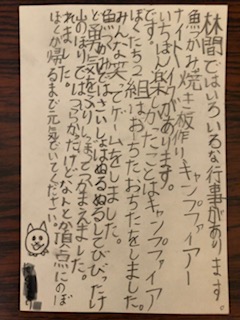 林間ではいろいろな行事があります。
魚つかみ焼き板作りキャンプファイアー
ナイトハイクがあります。
いちばん楽しかったことはキャンプファイア
です。
ぼくたち2組はおちたおちたをしました。
みんな笑ってゲームをしました。
魚つかみではさいしょはぬるぬるしてびびったけ
ど勇気をふりしぼってつかまえました。
山のぼりではつらかっただけどなんとか頂点にのぼ
れました。
ぼくが帰るまで元気でいてください。